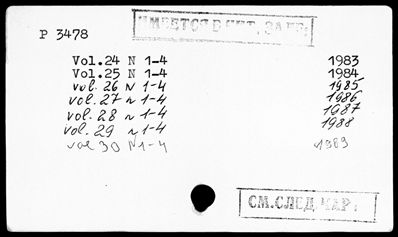 ИМЕЕТСЯ В ЧИТ. ЗАЛЕ
P 3478
Vol.24 N 1-4 1983
Vol.25 N 1-4 1984
vol. 26 N 1-4 1985
vol. 27 N 1-4 1986
vol. 28 N 1-4 1987
vol. 29 N 1-4 1988
vol 30 N 1-4 1989
СМ.СЛЕД.КАР.